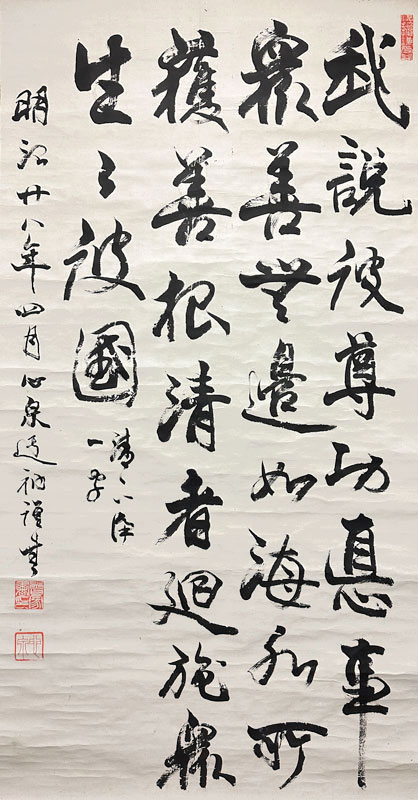 我説彼尊功悳事
衆善無邊如海水所
獲善根清者迴施衆
生々彼國
清下
一字
明治廿八年四月心泉衲謹書